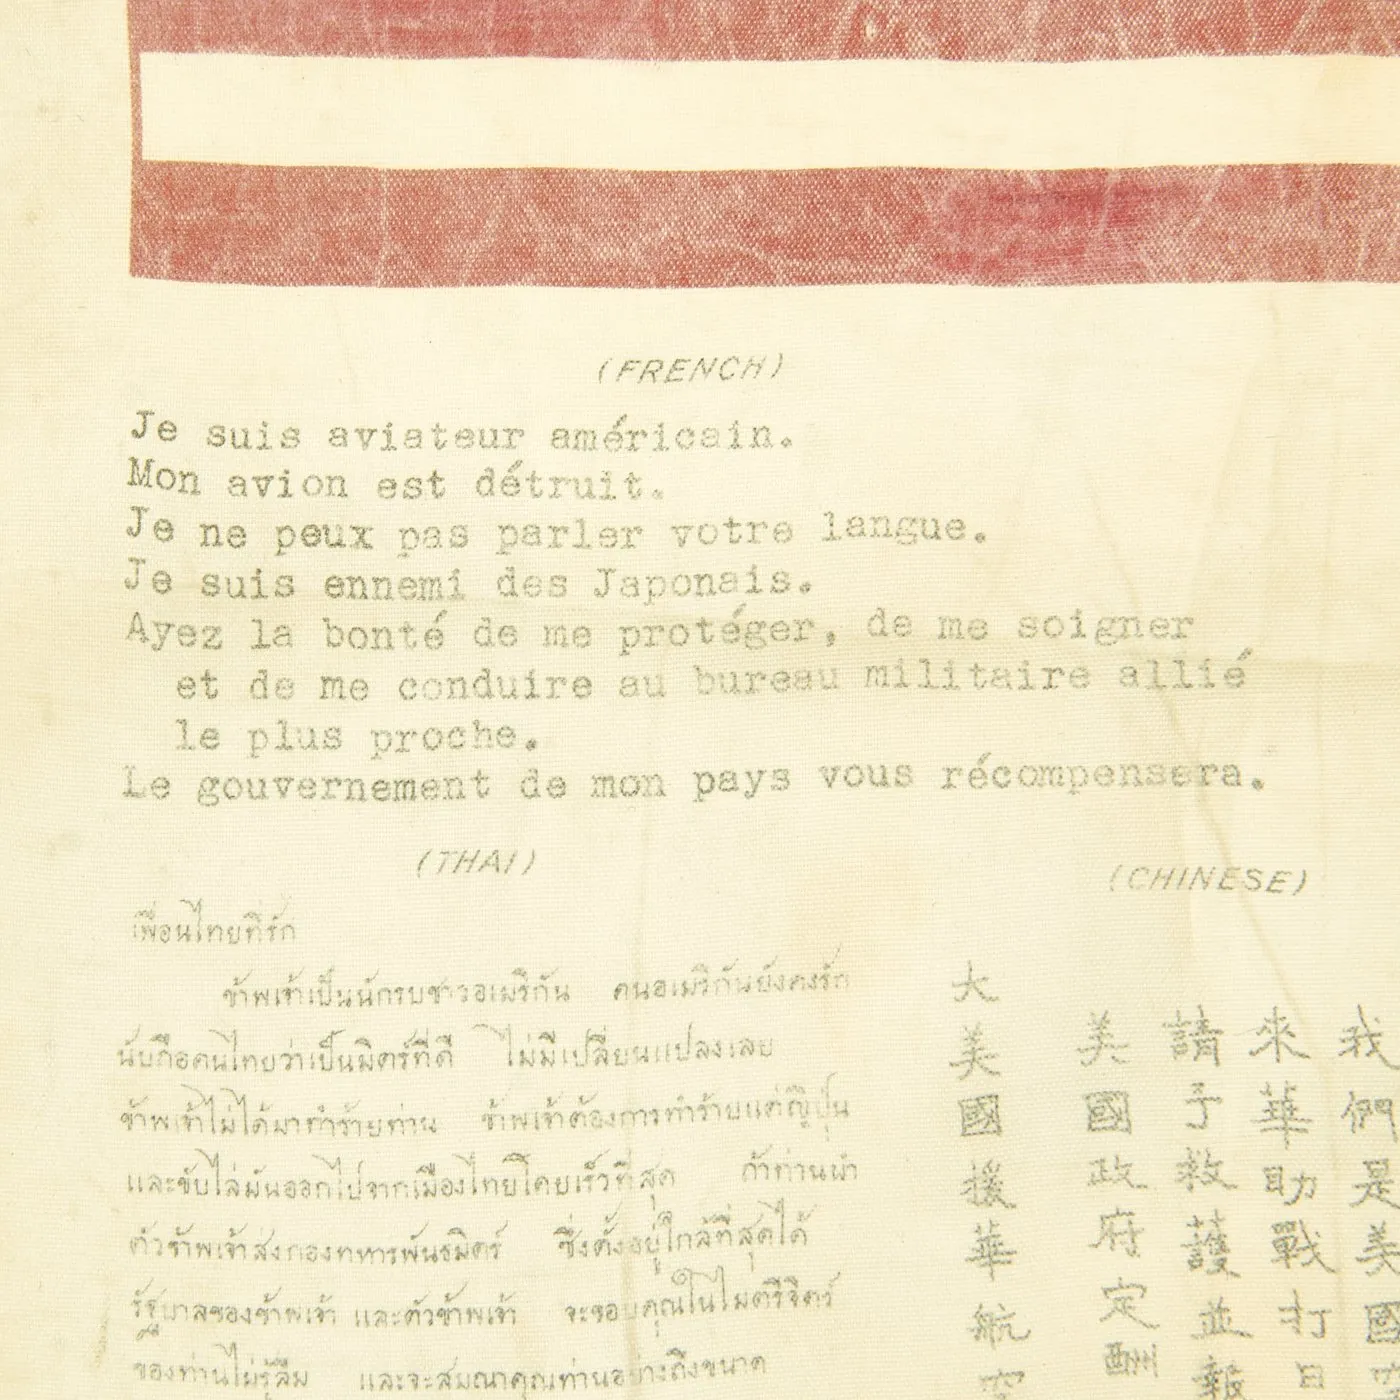 (FRENCH)
Je suis aviateur américain.
Mon avion est détruit.
Je ne peux pas parler votre langue.
Je suis ennemi des Japonais.
Ayez la bonté de me protéger, de me soigner
et de me conduire au bureau militaire allié
le plus proche.
Le gouvernement de mon pays vous récompensera.
(THAI)
เพื่อนไทยที่รัก
ข้าพเจ้าเป็นนักรบชาวอเมริกัน คนอเมริกันยังคงรัก
นับถือคนไทยว่าเป็นมิตร์ที่ดี ไม่มีเปลี่ยนแปลงเลย
ข้าพเจ้าไม่ได้มาทำร้ายท่าน ข้าพเจ้าต้องการทำร้ายแต่ญี่ปุ่น
และขับไล่มันออกไปจากเมืองไทยโดยเร็วที่สุด ถ้าท่านนำ
ตัวข้าพเจ้าส่งกองทหารพันธมิตร์ ซึ่งตั้งอยู่ใกล้ที่สุดได้
รัฐบาลของข้าพเจ้า และตัวข้าพเจ้า จะขอบคุณในไมตรีจิตร์
ของท่านไม่รู้ลืม และจะสมณาคุณท่านอย่างถึงขนาด
(CHINESE)
我們是美國
來華助戰打日
請予救護並報
美國政府定酬
大美國援華航空